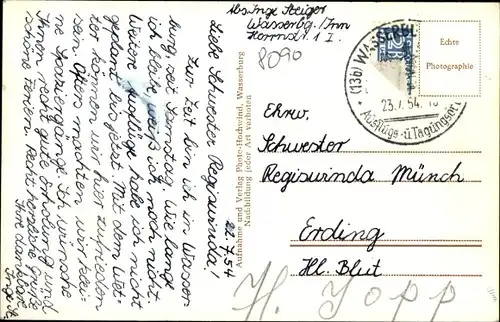 22.7.54
Liebe Schwester Regiswinda!
Zur Zeit bin ich in Wasser
burg seit Samstag. Wie lange
ich bleibe weiß ich noch nicht.
Weitere Ausflüge habe ich nicht
geplant bis jetzt. Mit dem Wet-
ter können wir hier zufrieden
sein. Öfters machten wir klei-
ne Spaziergänge. Ich wünsche
Ihnen recht gute Erholung und
schöne Ferien. Recht herzliche Grüße
Ihre dankbare
Inge St.
Aufnahme und Verlag Photo-Hochwind, Wasserburg
Nachbildung jeder Art verboten
Abs. Inge Steiger
Wasserbg./Inn
8090
(13b) WASSERBURG
23.7.54
Ausflugs- u. Tagungsort
2
Echte
Photographie
Ehrw.
Schwester
Regiswinda Münch
Erding
Hl. Blut
H. Jopp